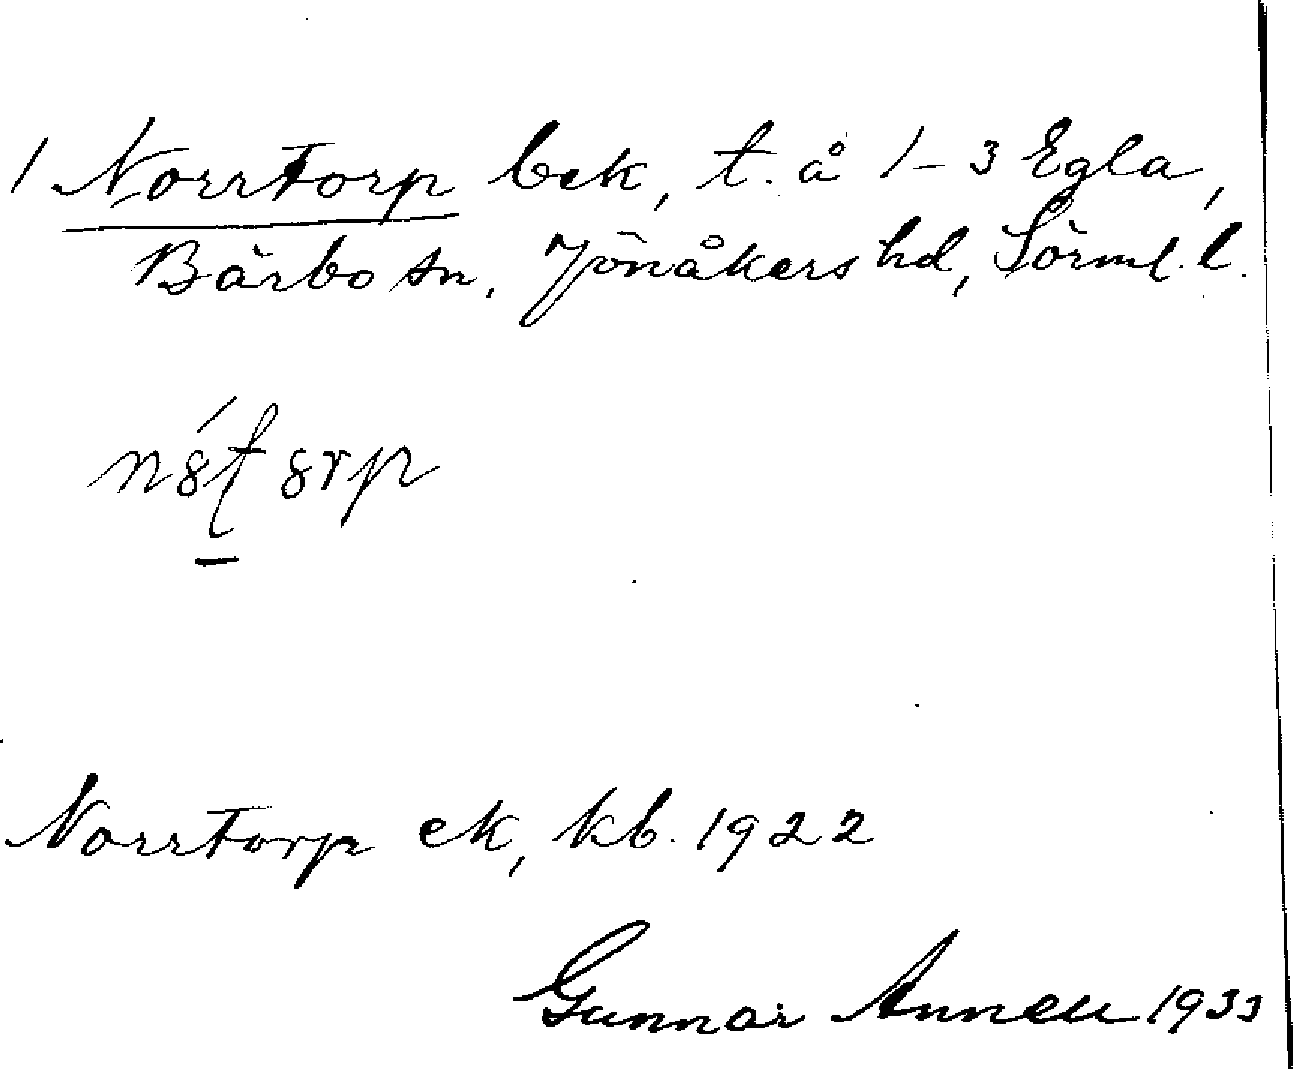 1 Norrtorp bek, t. å 1–3 Egla,
Bärbo sn, Jönåkers hd, Sörml. l.
Norrtorp ek, kb. 1922
Gunnar Annell 1933